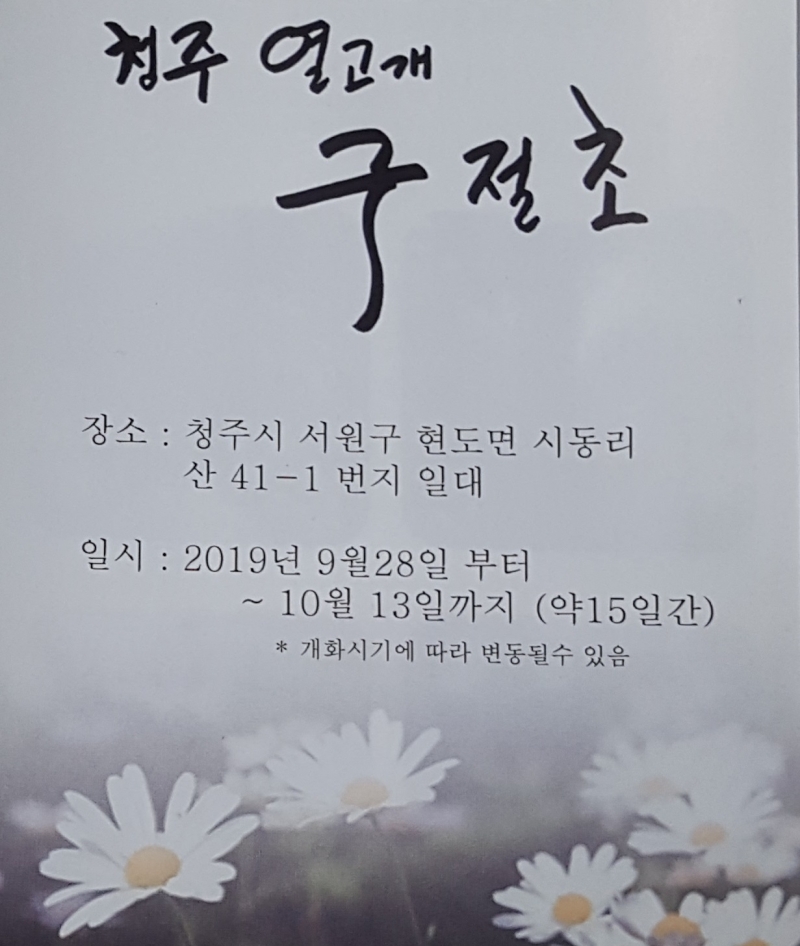 청주 열고개
구절초
장소 : 청주시 서원구 현도면 시동리
산 41-1 번지 일대
일시 : 2019년 9월28일 부터
~ 10월 13일까지 (약15일간)
* 개화시기에 따라 변동될수 있음